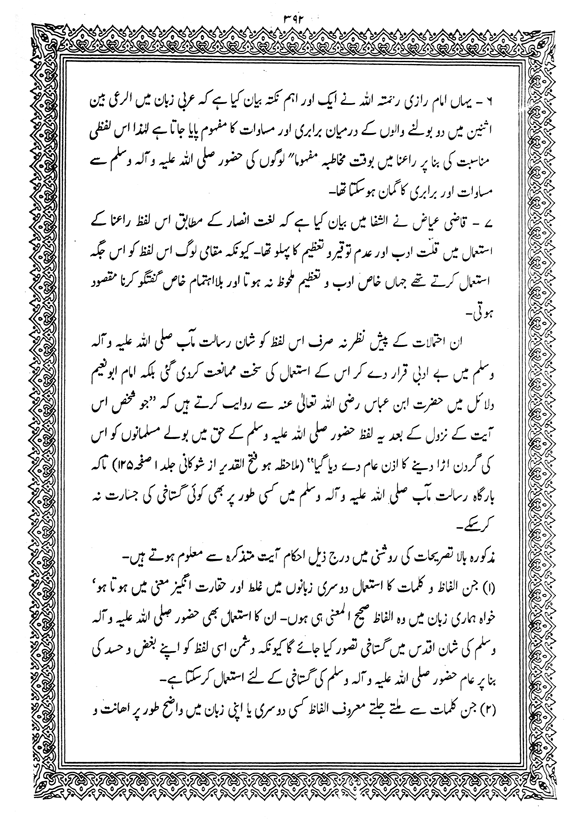 ۳۹۲
۶ - یہاں امام رازی رحمتہ اللہ نے ایک اور اہم نکتہ بیان کیا ہے کہ عربی زبان میں الرعی بین
اثنین میں دو بولنے والوں کے درمیان برابری اور مساوات کا مفہوم پایا جاتا ہے لہٰذا اس لفظی
مناسبت کی بنا پر راعنا میں بوقت مخاطبہ مفہوما" لوگوں کی حضور صلی اللہ علیہ و آلہ وسلم سے
مساوات اور برابری کا گمان ہو سکتا تھا-
۷ - قاضی عیاض نے الشفا میں بیان کیا ہے کہ لغت انصار کے مطابق اس لفظ راعنا کے
استعمال میں قلّت ادب اور عدم توقیر و تعظیم کا پہلو تھا- کیونکہ مقامی لوگ اس لفظ کو اس جگہ
استعمال کرتے تھے جہاں خاص ادب و تعظیم ملحوظ نہ ہوتا اور بلااہتمام خاص گفتگو کرنا مقصود
ہوتی-
ان احتمالات کے پیش نظر نہ صرف اس لفظ کو شان رسالت مآب صلی اللہ علیہ و آلہ
وسلم میں بے ادبی قرار دے کر اس کے استعمال کی سخت ممانعت کردی گئی بلکہ امام ابو نعیم
دلائل میں حضرت ابن عباس رضی اللہ تعالیٰ عنہ سے روایت کرتے ہیں کہ "جو شخص اس
آیت کے نزول کے بعد یہ لفظ حضور صلی اللہ علیہ وسلم کے حق میں بولے مسلمانوں کو اس
کی گردن اڑا دینے کا اذن عام دے دیا گیا" (ملاحظہ ہو فتح القدیر از شوکانی جلد ۱ صفحہ ۱۲۵) تاکہ
بارگاہ رسالت مآب صلی اللہ علیہ و آلہ وسلم میں کسی طور پر بھی کوئی گستاخی کی جسارت نہ
کرسکے-
مذکورہ بالا تصریحات کی روشنی میں درج ذیل احکام آیت متذکرہ سے معلوم ہوتے ہیں-
(۱) جن الفاظ و کلمات کا استعمال دوسری زبانوں میں غلط اور حقارت انگیز معنی میں ہوتا ہو'
خواہ ہماری زبان میں وہ الفاظ صحیح المعنی ہی ہوں- ان کا استعمال بھی حضور صلی اللہ علیہ و آلہ
وسلم کی شان اقدس میں گستاخی تصور کیا جائے گا کیونکہ دشمن اسی لفظ کو اپنے بغض و حسد کی
بنا پر عام حضور صلی اللہ علیہ و آلہ وسلم کی گستاخی کے لئے استعمال کرسکتا ہے-
(۲) جن کلمات سے ملتے جلتے معروف الفاظ کسی دوسری یا اپنی زبان میں واضح طور پر اھانت و